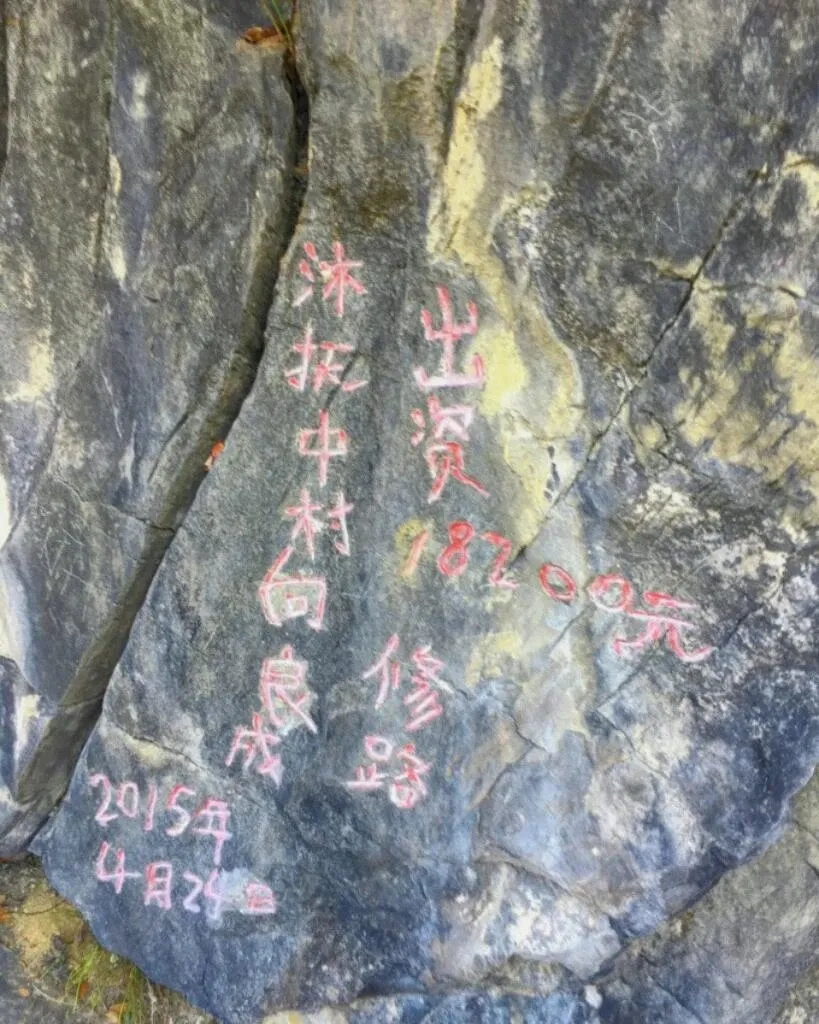 沐抚中村向良成
出资
18200元
修路
2015年
4月24日